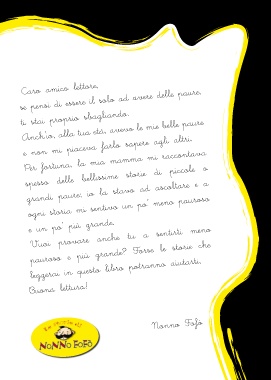 Caro amico lettore,
se pensi di essere il solo ad avere delle paure,
ti stai proprio sbagliando.
Anch'io, alla tua età, avevo le mie belle paure
e non mi piaceva farlo sapere agli altri.
Per fortuna, la mia mamma mi raccontava
spesso delle bellissime storie di piccole e
grandi paure; io la stavo ad ascoltare e a
ogni storia mi sentivo un po' meno pauroso
e un po' più grande.
Vuoi provare anche tu a sentirti meno
pauroso e più grande? Forse le storie che
leggerai in questo libro potranno aiutarti.
Buona lettura!
Nonno Fofò
NONNO FOFÒ